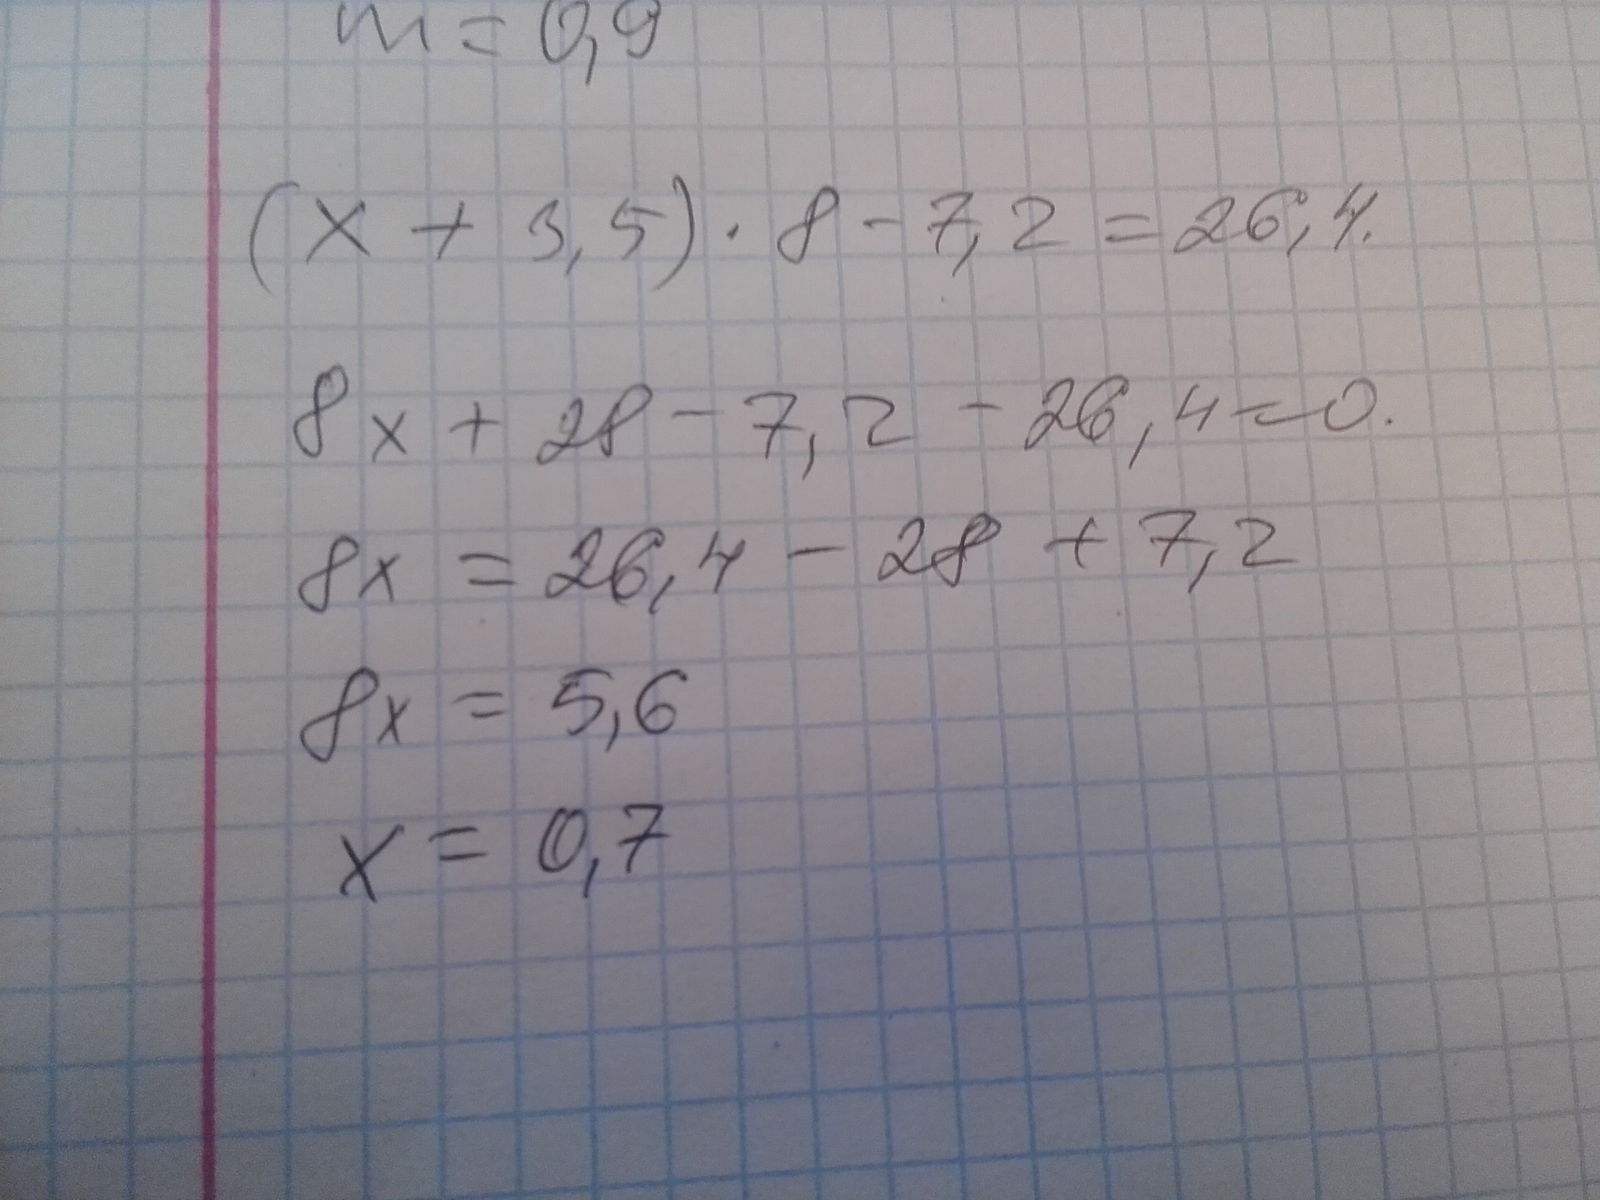 m = 0,9
(x + 3,5) · 8 - 7,2 = 26,4.
8x + 28 - 7,2 - 26,4 = 0.
8x = 26,4 - 28 + 7,2
8x = 5,6
x = 0,7